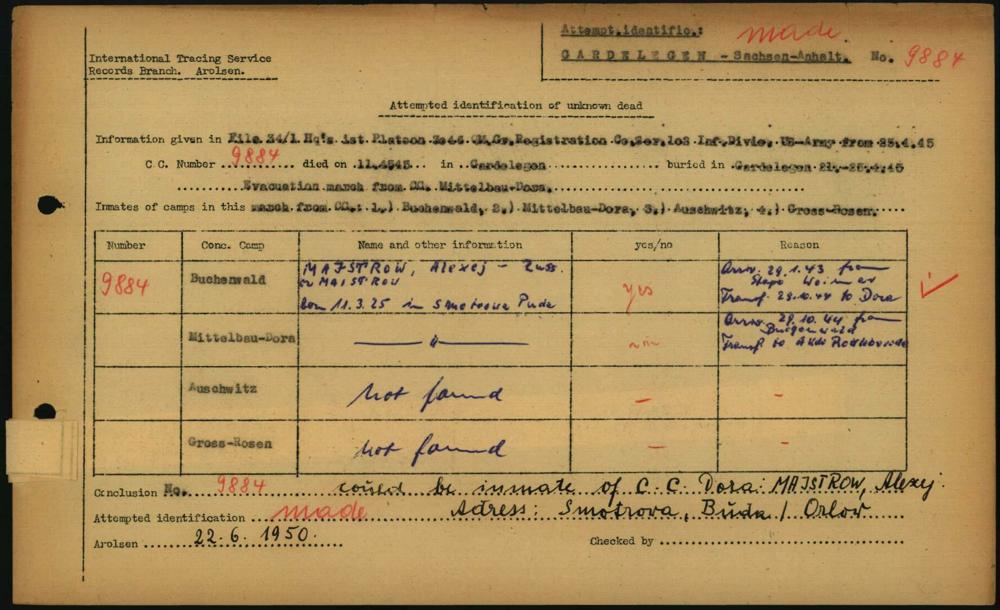 Attempt.identific.: made
GARDELEGEN - Sachsen-Anhalt. No. 9884
International Tracing Service
Records Branch. Arolsen.
Attempted identification of unknown dead
Information given in File 34/1 Hq's 1st Platoon 3046 QM.Gr.Registration Co.Ser.102 Inf.Divis. US-Army from 25.4.45
C.C. Number 9884 died on 11.4545 in Gardelegen buried in Gardelegen 21.-25.4.45
Evacuation march from CC. Mittelbau-Dora.
Inmates of camps in this march from CC.: 1.) Buchenwald, 2.) Mittelbau-Dora, 3.) Auschwitz, 4.) Gross-Rosen.
Number Conc. Camp Name and other information yes/no Reason
9884 Buchenwald MAJSTROW, Alexej - Russ.
or MAISTROW
born 11.3.25 in Smotrowa Puda
yes
Arriv. 29.1.43 from
Stapo Weimar
Transf. 28.10.44 to Dora
Mittelbau-Dora — " —
Arriv. 29.10.44 from
Transf. to
Auschwitz not found - -
Gross-Rosen not found - -
Conclusion No. 9884 could be inmate of C.C. Dora: MAJSTROW, Alexej
Attempted identification made Adress: Smotrova, Buda / Orlov
Arolsen 22.6.1950. Checked by